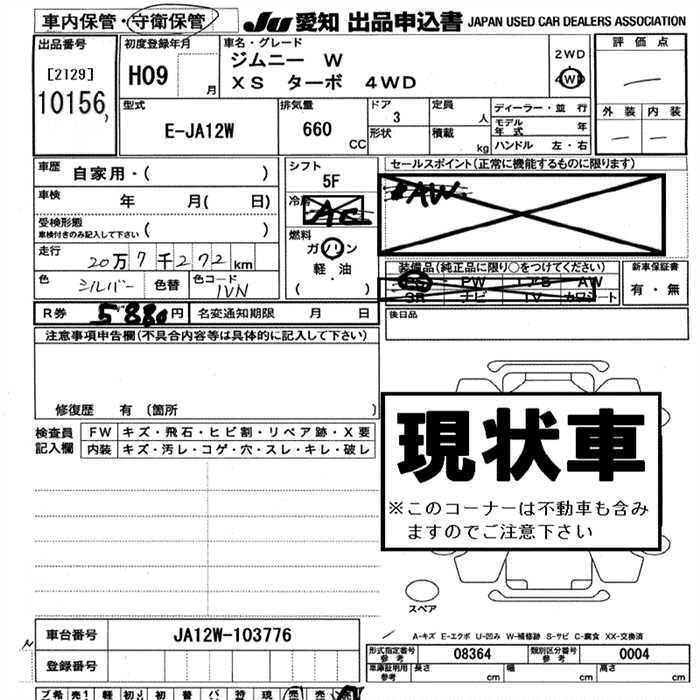 車内保管・守衛保管 JU 愛知 出品申込書 JAPAN USED CAR DEALERS ASSOCIATION
出品番号 初度登録年月 車名・グレード 評価点
[2129] H09 月 ジムニー W 2WD
10156 XS ターボ 4WD 4WD
外装 内装
型式 排気量 ドア 定員 ディーラー・並行
E-JA12W 660 CC 3 人 モデル年式 年
形状 積載 kg ハンドル 左・右
車歴 自家用・( ) シフト セールスポイント(正常に機能するものに限ります)
5F AW.
車検 年 月( 日) 冷房 AC
受検形態 車検付きのみ記入して下さい ( ) 燃料
走行 20万7千272km ガソリン 装備品(純正品に限り○をつけてください) 新車保証書
色 シルバー 色替 色コード 1VN 軽・油 PS PW エアB AW 有・無
( ) SR ナビ TV カワシート
R券 5880円 名変通知期限 月 日 後日品
注意事項申告欄(不具合内容等は具体的に記入して下さい)
修復歴 有 〔箇所 〕
検査員記入欄 FW キズ・飛石・ヒビ割・リペア跡・X要
内装 キズ・汚レ・コゲ・穴・スレ・キレ・破レ
現状車
※このコーナーは不動車も含み
ますのでご注意下さい
スペア
A-キズ E-エクボ U-凹み W-補修跡 S-サビ C-腐食 XX-交換済
車台番号 JA12W-103776 形式指定番号 参考 08364 類別区分番号 参考 0004
登録番号 車庫証明用 参考 長さ cm 幅 cm 高さ cm